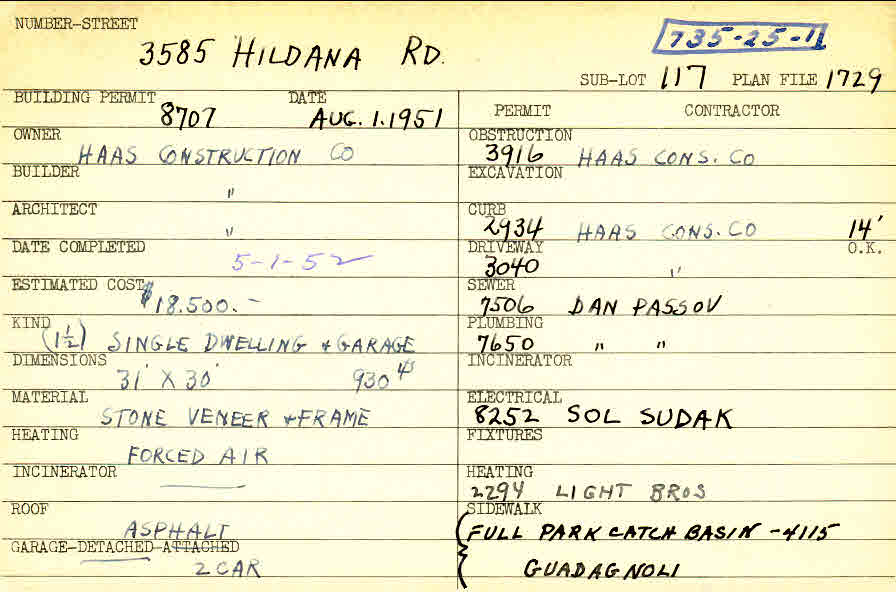 NUMBER-STREET
3585 HILDANA RD.
735-25-11
SUB-LOT 117 PLAN FILE 1729
BUILDING PERMIT DATE
8707 AUG. 1. 1951
OWNER
HAAS CONSTRUCTION CO
BUILDER
"
ARCHITECT
"
DATE COMPLETED
5-1-52
ESTIMATED COST
$18.500.-
KIND
(1½) SINGLE DWELLING + GARAGE
DIMENSIONS
31' X 30' 930
MATERIAL
STONE VENEER + FRAME
HEATING
FORCED AIR
INCINERATOR
ROOF
ASPHALT
GARAGE-DETACHED-ATTACHED
2 CAR
PERMIT CONTRACTOR
OBSTRUCTION
3916 HAAS CONS. CO
EXCAVATION
CURB
2934 HAAS CONS. CO 14'
DRIVEWAY O.K.
3040 "
SEWER
7506 DAN PASSOV
PLUMBING
7650 " "
INCINERATOR
ELECTRICAL
8252 SOL SUDAK
FIXTURES
HEATING
2294 LIGHT BROS
SIDEWALK
FULL PARK CATCH BASIN - 4115
GUADAGNOLI